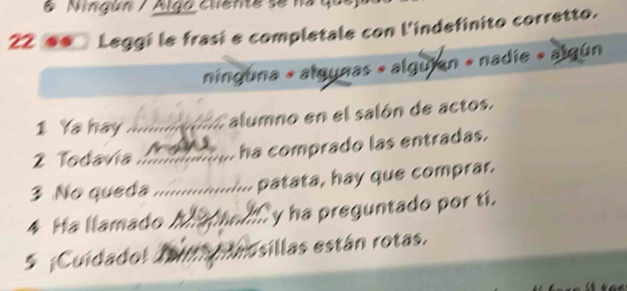 6 Ningún / Algo cliente se ha
22 Leggi le frasi e completale con l'indefinito corretto.
ninguna • algunas • alguien • nadie • algún
1 Ya hay ............ alumno en el salón de actos.
2 Todavía ............ ha comprado las entradas.
3 No queda ............ patata, hay que comprar.
4 Ha llamado ............ y ha preguntado por ti.
5 ¡Cuidado! ............ sillas están rotas.